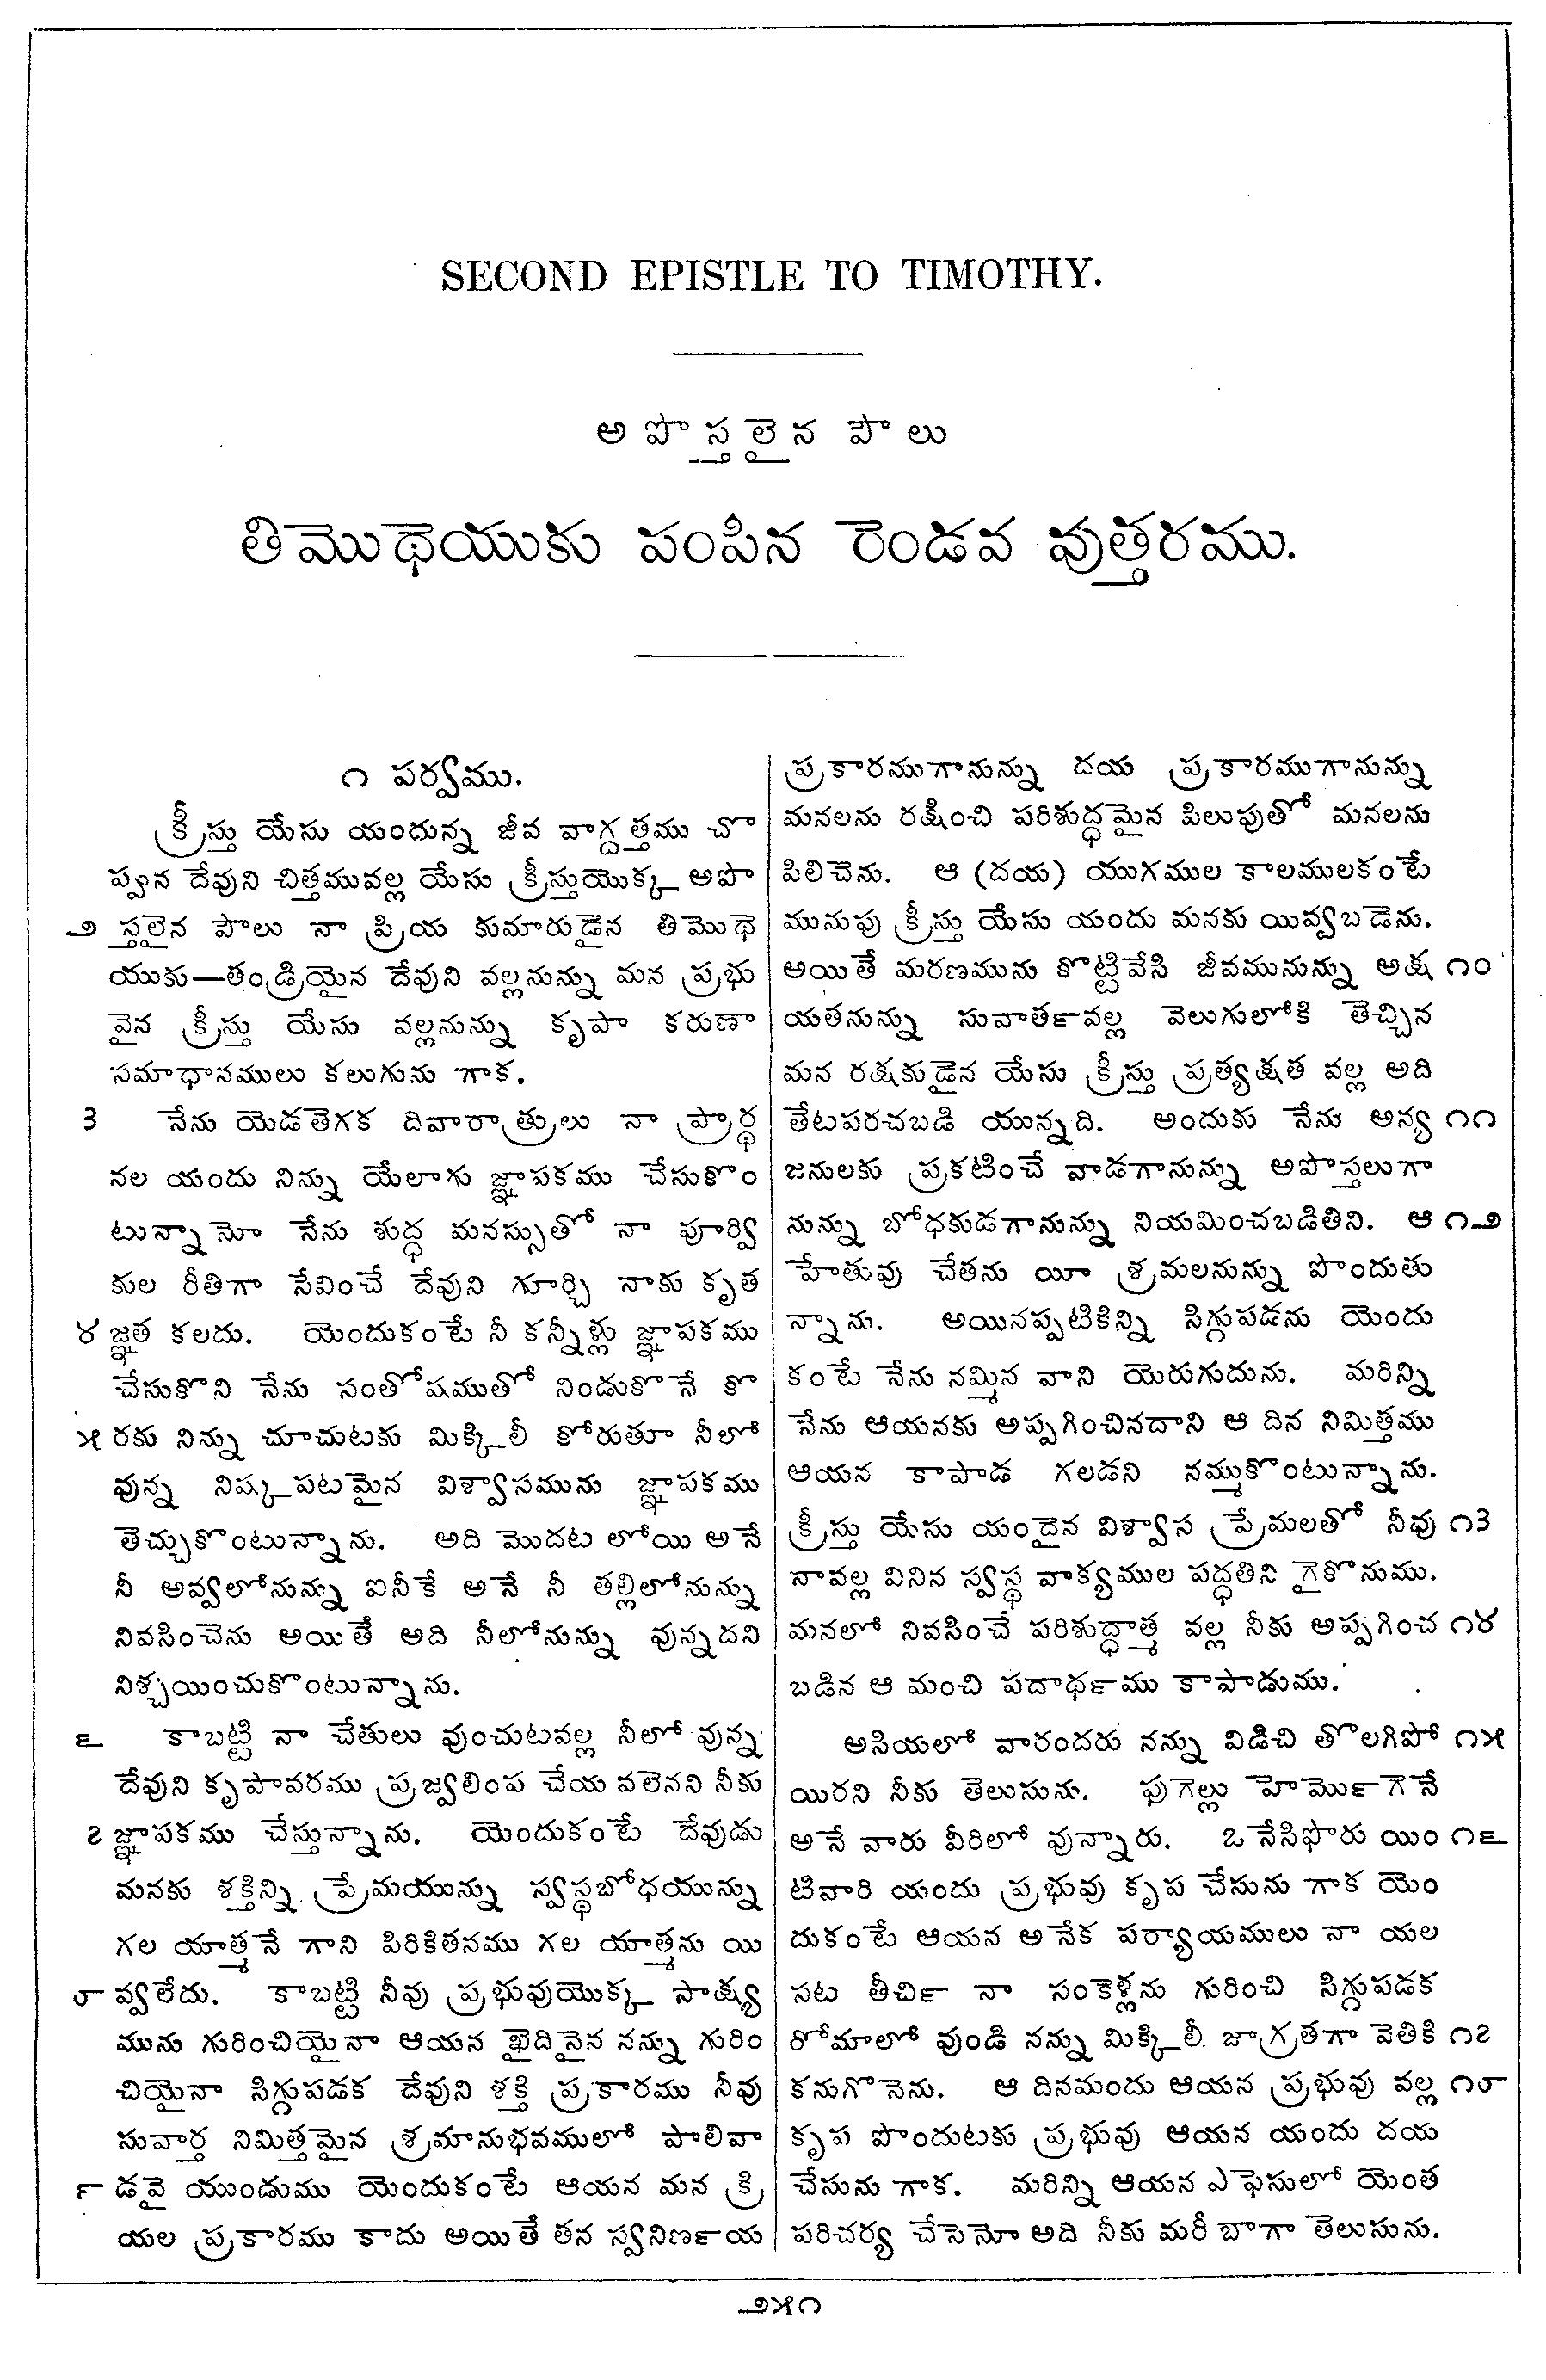 SECOND EPISTLE TO TIMOTHY.
అపొస్తలైన పౌలు
తిమొథెయుకు పంపిన రెండవ వుత్తరము.
౧ పర్వము.
క్రీస్తు యేసు యందున్న జీవ వాగ్దత్తము చొ
ప్పున దేవుని చిత్తమువల్ల యేసు క్రీస్తుయొక్క అపొ
౨ స్తలైన పౌలు నా ప్రియ కుమారుడైన తిమొథె
యుకు—తండ్రియైన దేవుని వల్లనున్ను మన ప్రభు
వైన క్రీస్తు యేసు వల్లనున్ను కృపా కరుణా
సమాధానములు కలుగును గాక.
౩ నేను యెడతెగక దివారాత్రులు నా ప్రార్థ
నల యందు నిన్ను యేలాగు జ్ఞాపకము చేసుకొం
టున్నానో నేను శుద్ధ మనస్సుతో నా పూర్వి
కుల రీతిగా సేవించే దేవుని గూర్చి నాకు కృత
౪ జ్ఞత కలదు. యెందుకంటే నీ కన్నీళ్లు జ్ఞాపకము
చేసుకొని నేను సంతోషముతో నిండుకొనే కొ
౫ రకు నిన్ను చూచుటకు మిక్కిలీ కోరుతూ నీలో
వున్న నిష్కపటమైన విశ్వాసమును జ్ఞాపకము
తెచ్చుకొంటున్నాను. అది మొదట లోయి అనే
నీ అవ్వలోనున్ను ఐనీకే అనే నీ తల్లిలోనున్ను
నివసించెను అయితే అది నీలోనున్ను వున్నదని
నిశ్చయించుకొంటున్నాను.
౬ కాబట్టి నా చేతులు వుంచుటవల్ల నీలో వున్న
దేవుని కృపావరము ప్రజ్వలింప చేయ వలెనని నీకు
౭ జ్ఞాపకము చేస్తున్నాను. యెందుకంటే దేవుడు
మనకు శక్తిన్ని ప్రేమయున్ను స్వస్థబోధయున్ను
గల యాత్మనే గాని పిరికితనము గల యాత్మను యి
౮ వ్వలేదు. కాబట్టి నీవు ప్రభువుయొక్క సాక్ష్య
మును గురించియైనా ఆయన ఖైదినైన నన్ను గురిం
చియైనా సిగ్గుపడక దేవుని శక్తి ప్రకారము నీవు
సువార్త నిమిత్తమైన శ్రమానుభవములో పాలివా
౯ డవై యుండుము యెందుకంటే ఆయన మన క్రి
యల ప్రకారము కాదు అయితే తన స్వనిణ౯య
ప్రకారముగానున్ను దయ ప్రకారముగానున్ను
మనలను రక్షించి పరిశుద్ధమైన పిలుపుతో మనలను
పిలిచెను. ఆ (దయ) యుగముల కాలములకంటే
మునుపు క్రీస్తు యేసు యందు మనకు యివ్వబడెను.
అయితే మరణమును కొట్టివేసి జీవమునున్ను అక్ష ౧౦
యతనున్ను సువాత౯వల్ల వెలుగులోకి తెచ్చిన
మన రక్షకుడైన యేసు క్రీస్తు ప్రత్యక్షత వల్ల అది
తేటపరచబడి యున్నది. అందుకు నేను అన్య ౧౧
జనులకు ప్రకటించే వాడగానున్ను అపొస్తలుగా
నున్ను బోధకుడగానున్ను నియమించబడితిని. ఆ ౧౨
హేతువు చేతను యీ శ్రమలనున్ను పొందుతు
న్నాను. అయినప్పటికిన్ని సిగ్గుపడను యెందు
కంటే నేను నమ్మిన వాని యెరుగుదును. మరిన్ని
నేను ఆయనకు అప్పగించినదాని ఆ దిన నిమిత్తము
ఆయన కాపాడ గలడని నమ్ముకొంటున్నాను.
క్రీస్తు యేసు యందైన విశ్వాస ప్రేమలతో నీవు ౧౩
నావల్ల వినిన స్వస్థ వాక్యముల పద్ధతిని గైకొనుము.
మనలో నివసించే పరిశుద్ధాత్మ వల్ల నీకు అప్పగించ ౧౪
బడిన ఆ మంచి పదాథ౯ము కాపాడుము.
అసియలో వారందరు నన్ను విడిచి తొలగిపో ౧౫
యిరని నీకు తెలుసును. ఫుగెల్లు హెమొ౯గెనే
అనే వారు వీరిలో వున్నారు. ఒనేసిఫొరు యిం ౧౬
టివారి యందు ప్రభువు కృప చేసును గాక యెం
దుకంటే ఆయన అనేక పర్యాయములు నా యల
సట తీచి౯ నా సంకెళ్లను గురించి సిగ్గుపడక
రోమాలో వుండి నన్ను మిక్కిలీ జాగ్రతగా వెతికి ౧౭
కనుగొనెను. ఆ దినమందు ఆయన ప్రభువు వల్ల ౧౮
కృప పొందుటకు ప్రభువు ఆయన యందు దయ
చేసును గాక. మరిన్ని ఆయన ఎఫెసులో యెంత
పరిచర్య చేసెనో అది నీకు మరీ బాగా తెలుసును.
౨౫౧